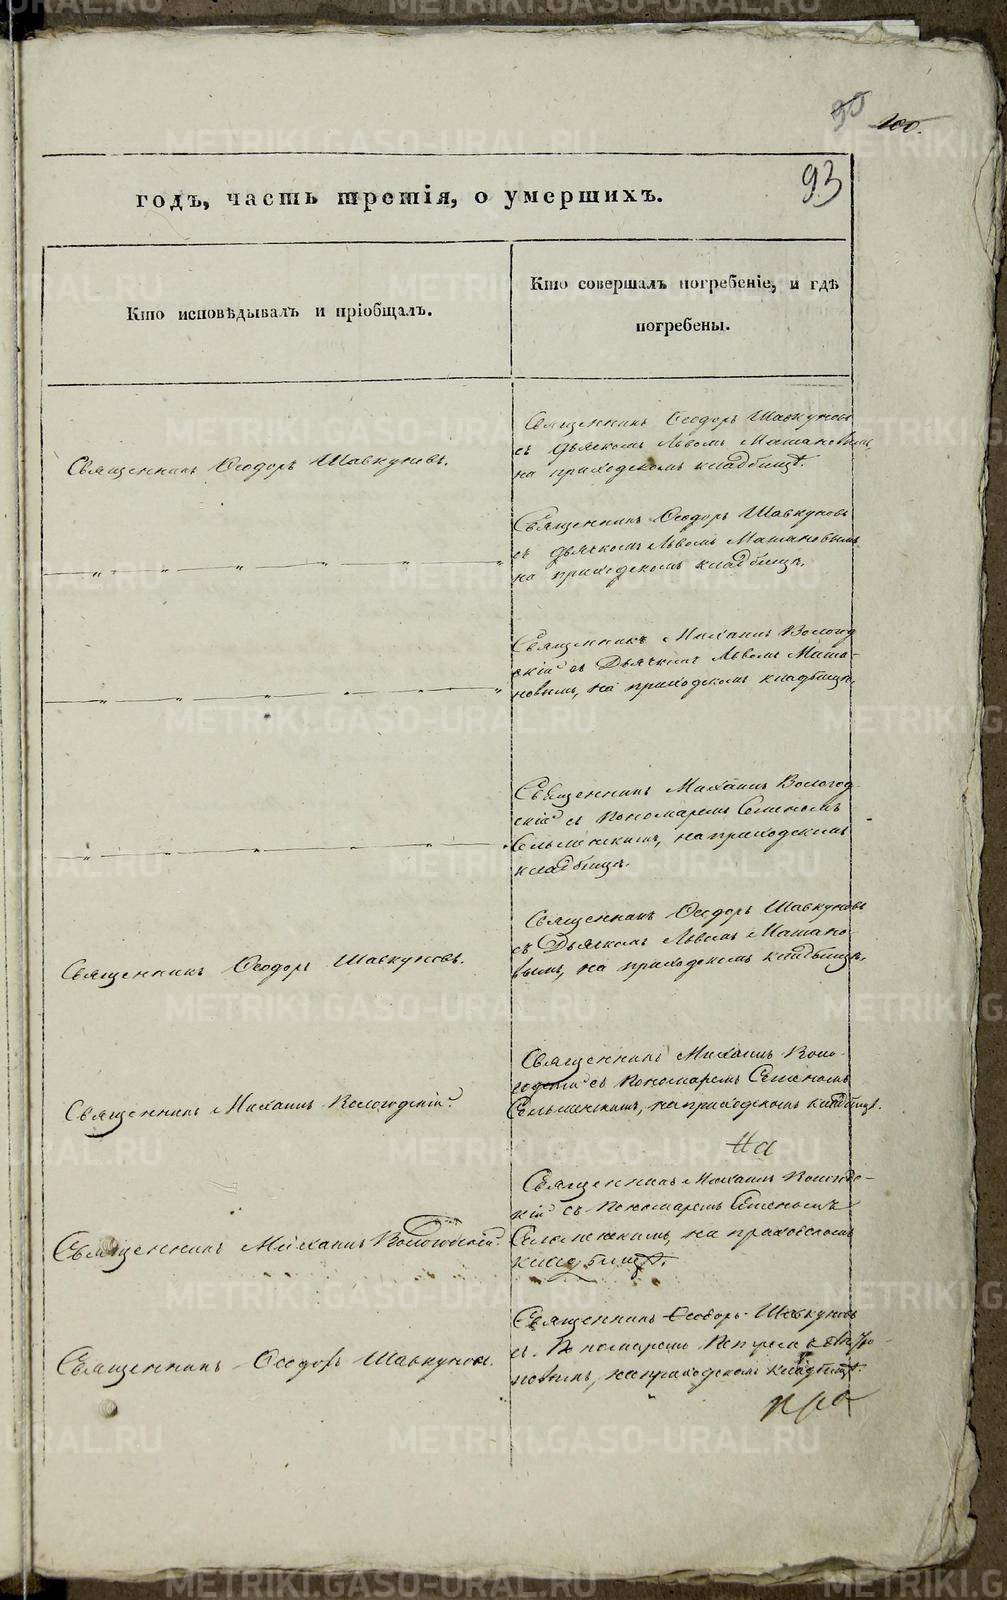 93
годъ, часть третія, о умершихъ.
Кто исповѣдывалъ и пріобщалъ.
Кто совершалъ погребеніе, и гдѣ
погребены.
Священникъ Ѳеодоръ Шавкуновъ.
Священникъ Ѳеодоръ Шавкуновъ
съ дьячкомъ Львомъ Машановымъ,
на приходскомъ кладбищѣ.
Священникъ Ѳеодоръ Шавкуновъ
съ дьячкомъ Львомъ Машановымъ
на приходскомъ кладбищѣ.
Священникъ Михаилъ Вологод
скій съ Дьячкомъ Львомъ Маша-
новымъ, на приходскомъ кладбищѣ.
Священникъ Михаилъ Вологод
скій съ Пономаремъ Семеномъ
на приходскомъ
кладбищѣ.
Священникъ Ѳеодоръ Шавкуновъ.
Священникъ Ѳеодоръ Шавкуновъ
съ Дьячкомъ Львомъ Машано-
вымъ, на приходскомъ кладбищѣ.
Священникъ Михаилъ Вологодскій.
Священникъ Михаилъ Воло-
годскій съ Пономаремъ Семеномъ
на приходскомъ кладбищѣ.
На
Священникъ Михаилъ Вологодскій.
Священникъ Михаилъ Вологодс-
кій съ Пономаремъ Семеномъ
на приходскомъ
кладбищѣ.
Священникъ Ѳеодоръ Шавкуновъ.
Священникъ Ѳеодоръ Шавкуновъ
съ Пономаремъ
на приходскомъ кладбищѣ.
METRIKI.GASO-URAL.RU